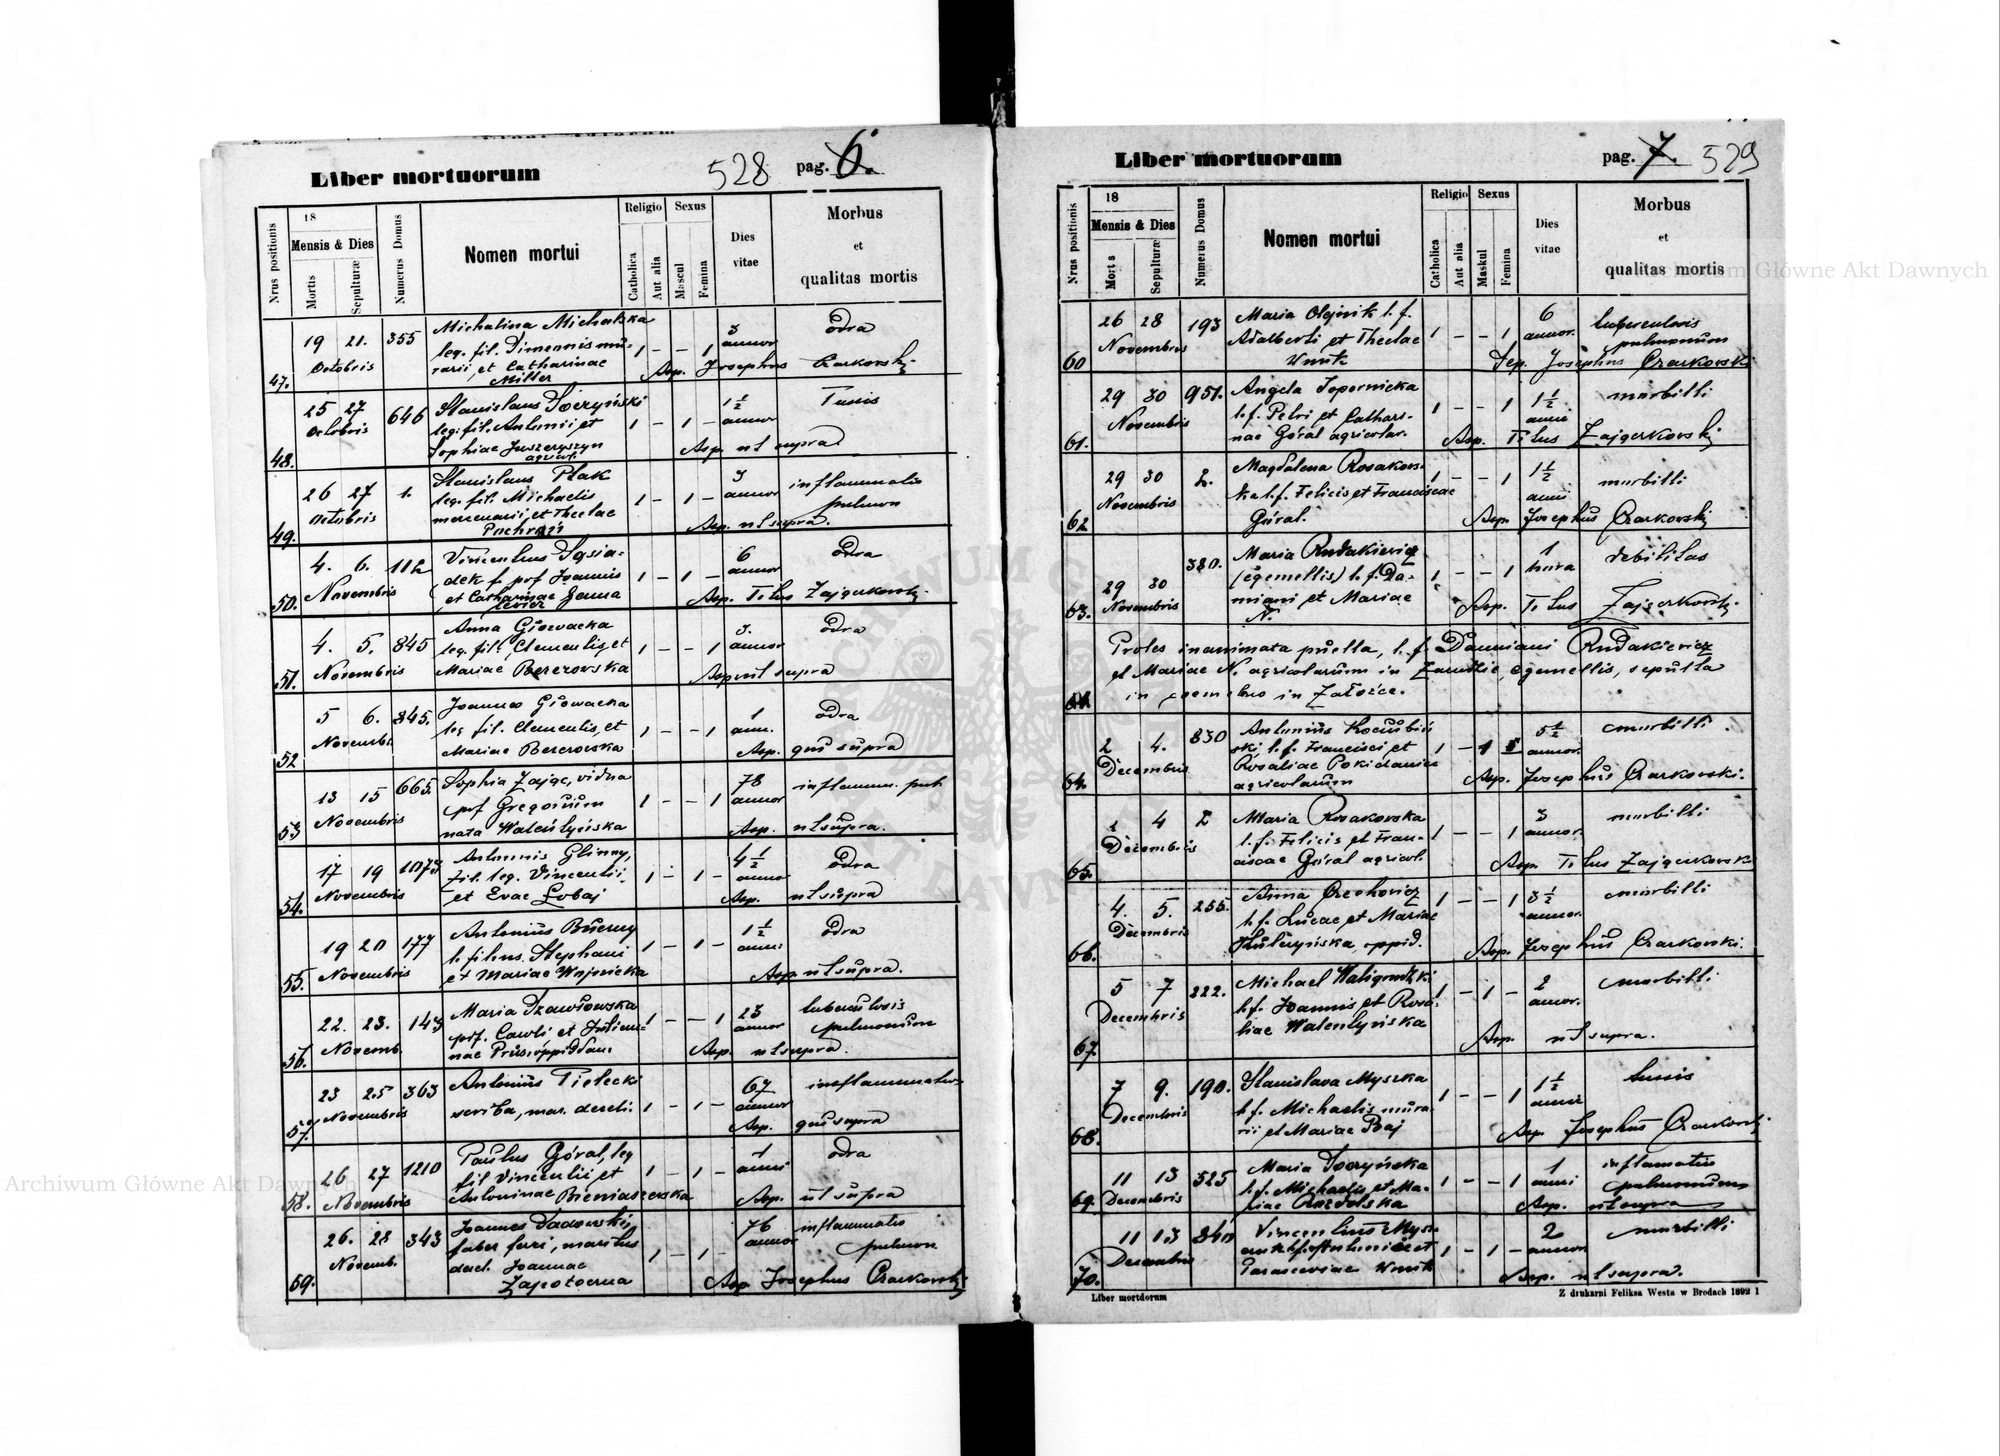 Liber mortuorum
528
pag. 6.
Nrus positionis
18
Mensis & Dies
Mortis
Sepulturæ
Numerus Domus
Nomen mortui
Religio
Catholica
Aut alia
Sexus
Mascul
Femina
Dies
vitae
Morbus
et
qualitas mortis
47. 19 21. Octobris 355
Michalina Michalska
leg. fil.
rarii, et Catharinae
Miller
1 - - 1
3 annor
Odra
Asp. Josephus Czarkowski
48. 25 27 Octobris 646
Stanislaus
leg. fil. Antonii et
Sophiae Juszczyszyn
agricol.
1 - 1 -
1 1/2 annor
Tussis
Asp. ut supra
49. 26 27 Octobris 1.
Stanislaus Ptak
leg. fil. Michaelis
mercenarii, et Theclae
1 - 1 -
3 annor
inflammatio
pulmon
Asp. ut supra.
50. 4. 6. Novembris 112
Vincentius Sąsia-
dek f. prf Joannis
et Catharinae
1 - 1 -
6 annor
Odra
Asp. Titus Zajączkowski
51. 4. 5. Novembris 845
Anna Głowacka
leg. fil. Clementis, et
Mariae Berezowska
1 - - 1
3. annor
Odra
Asp ut supra
52 5 6. Novemb. 845.
Joannes Głowacka
leg fil. Clementis, et
Mariae Berezowska
1 - - 1
1 ann.
Odra
Asp. qui supra
53 13 15 Novembris 665.
Sophia Zając, vidua
prf Gregorium
nata Walentyńska
1 - - 1
78 annor
inflamm. pul
Asp. ut supra.
54. 17 19 Novembris 1073
Antonius Glinny,
fil. leg. Vincentii,
et Evae Łobaj
1 - 1 -
4 1/2 annor
Odra
Asp. ut supra
55. 19 20 Novembris 177
Antonius
l. filius. Stephani
et Mariae Wojnicka
1 - 1 -
1 1/2 anni
Odra
Asp ut supra.
56. 22. 23. Novemb. 143
Maria
prf. Caroli et
nae Prus, oppidan.
1 - - 1
23 annor
tuberculosis
pulmonum
Asp. ut supra.
57. 23 25 Novembris 363
Antonius Pielecki
scriba, mar. dereli.
1 - 1 -
67 annor
inflammatio
Asp. qui supra
58. 26 27 Novembris 1210
Paulus Góral, leg
fil Vincentii et
Antoninae Bieniaszewska
1 - 1 -
1 anni
Odra
Asp. ut supra
69. 26. 28 Novemb. 343
Joannes Sadowski,
faber ferri, maritus
derel. Joannae
Zapotoczna
1 - 1 -
76 annor
inflammatio
pulmon
Asp Josephus Czarkowski
Liber mortuorum
pag. 7. 529
Nrus positionis
18
Mensis & Dies
Mortis
Sepulturæ
Numerus Domus
Nomen mortui
Religio
Catholica
Aut alia
Sexus
Maskul
Femina
Dies
vitae
Morbus
et
qualitas mortis
60 26 28 Novembris 193
Maria Olejnik l. f.
Adalberti et Theclae
Wnuk
1 - - 1
6 annor.
tuberculosis
pulmonum
Sep. Josephus Czarkowski
61. 29 30 Novembris 951.
Angela Topornicka
l. f. Petri et Cathari-
nae Góral agricolar.
1 - - 1
1 1/2 anni
morbilli
Asp. Titus Zajączkowski
62 29 30 Novembris 2.
Magdalena Rosakows-
ka l. f. Felicis et Franciscae
Góral.
1 - - 1
1 1/2 anni
morbilli
Asp. Josephus Czarkowski
63. 29 30 Novembris 380.
Maria Rudakiewicz
(egemellis) l. f. Da-
miani et Mariae
N.
1 - - 1
1 hora
debilitas
Asp. Titus Zajączkowski.
Proles inanimata puella, l. f. Damiani Rudakiewicz
et Mariae N. agricolarum in, egemellis, sepulta
in coemetrio in Załoźce.
64. 2 4. Decembris 830
Antonius Kociubiń
ski l. f. Francisci et
Rosaliae
agricolarum
1 - 1
5 1/2 annor.
morbilli
Asp. Josephus Czarkowski.
65. 4 Decembris 2
Maria Rosakowska
l. f. Felicis et Fran-
ciscae Góral agricol.
1 - - 1
3 annor.
morbilli
Asp. Titus Zajączkowski
66. 4. 5. Decembris 255.
Anna Orechowicz
l. f. Lucae et Mariae
oppid.
1 - - 1
3 1/2 annor.
morbilli
Asp. Josephus Czarkowski.
67. 5 7 Decembris 222.
Michael
l. f. Joannis et Rosa-
liae Walentyńska
1 - 1 -
2 annor.
morbilli
Asp. ut supra.
68. 7 9. Decembris 190.
Stanislava Myszka
l. f. Michaelis mura-
rii et Mariae Baj
1 - - 1
1 1/2 anni
tussis
Asp Josephus Czarkowski
69. 11 13 Decembris 525
Maria
l. f. Michaelis et Ma-
riae Rozdolska
1 - - 1
1 anni
inflamatio
pulmonum
Asp. ut supra
70. 11 13 Decembris 840
Vincentius
Antonii et
Parasceviae Wnuk
1 - 1 -
2 annor
morbilli
Asp. ut supra.
Liber mortdorum
Z drukarni Feliksa Westa w Brodach 1892 1
Archiwum Główne Akt Dawnych
Archiwum Główne Akt Dawnych
ARCHIWUM GŁÓWNE AKT DAWNYCH